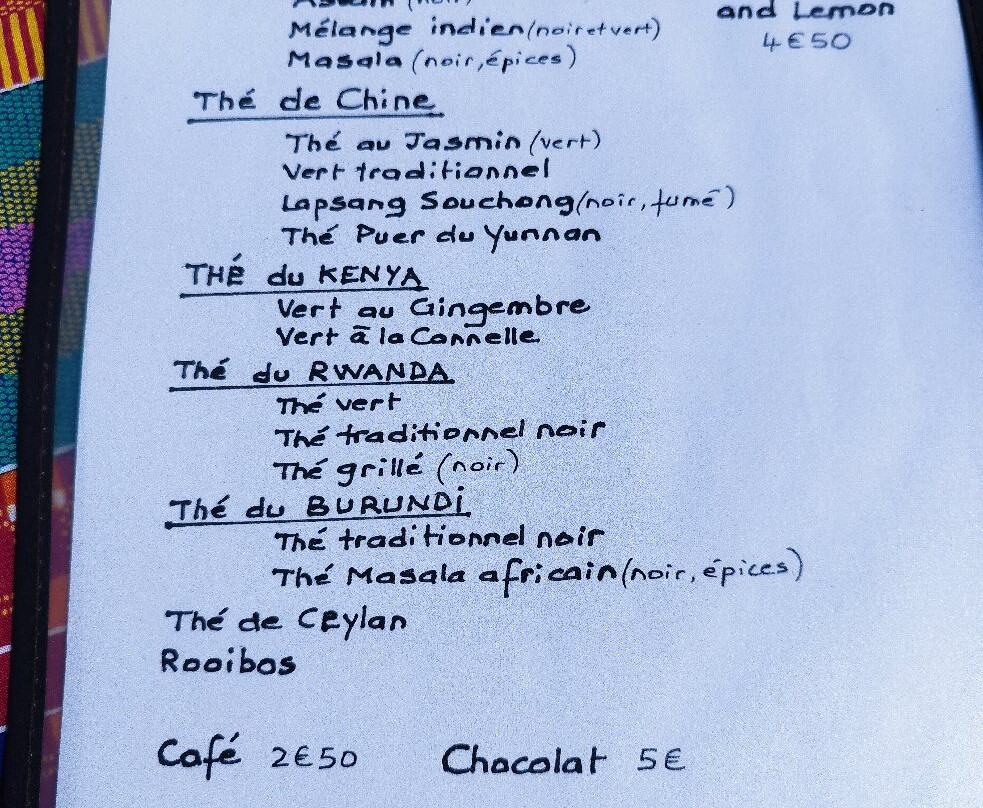 Mélange indien (noir et vert)
and Lemon
4€50
Masala (noir, épices)
Thé de Chine
Thé au Jasmin (vert)
Vert traditionnel
Lapsang Souchong (noir, fumé)
Thé Puer du Yunnan
THÉ du KENYA
Vert au Gingembre
Vert à la Cannelle
Thé du RWANDA
Thé vert
Thé traditionnel noir
Thé grillé (noir)
Thé du BURUNDI
Thé traditionnel noir
Thé Masala africain (noir, épices)
Thé de CEylan
Rooibos
Café 2€50 Chocolat 5€